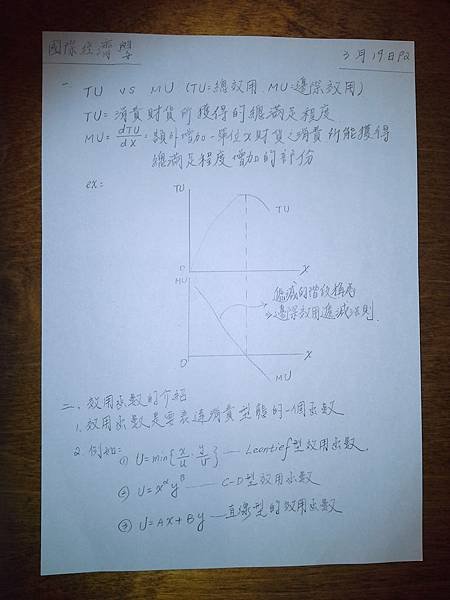 國際經濟學
3月19日P2
一 TU vs MU (TU=總效用 MU=邊際效用)
TU=消費財貨所獲得的總滿足程度
MU=dTU/dX=額外增加一單位X財貨之消費所能獲得
總滿足程度增加的部份
ex:
TU
TU
0
X
MU
遞減的階段稱為
⇒邊際效用遞減法則
0
MU
二、效用函數的介紹
1.效用函數是要表達消費型態的一個函數
2.例如:
① U=min{x/u,y/v}—Leontief型效用函數.
② U=x^α y^β —C-D型效用函數
③ U=Ax+By—直線型的效用函數